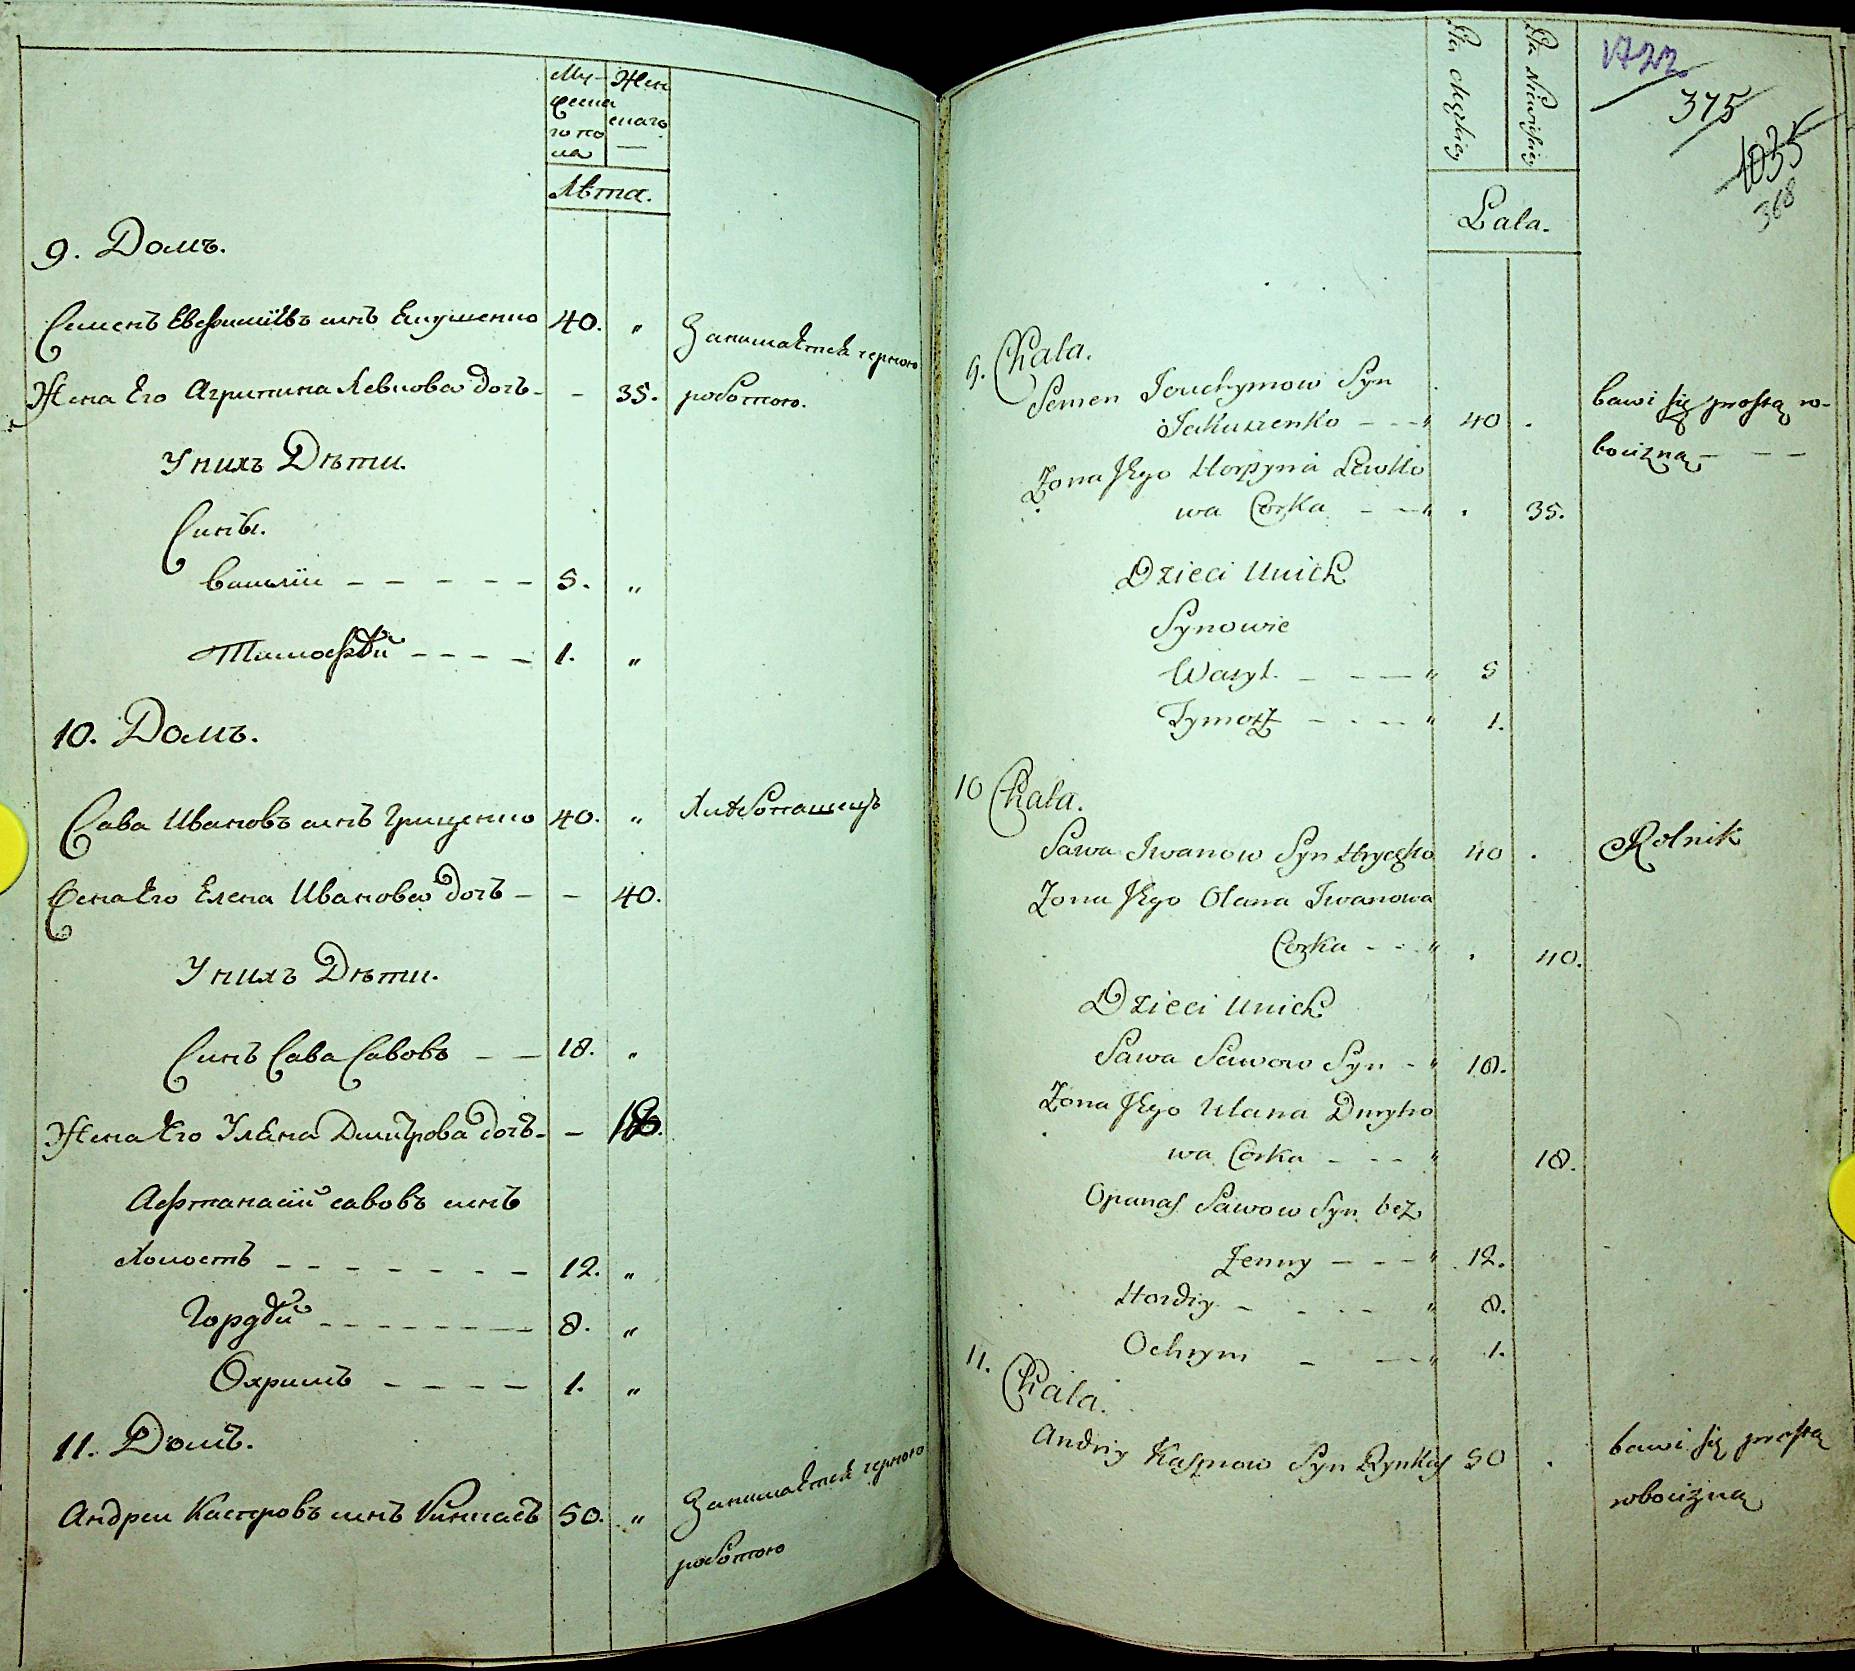 Му-
ческа
го по
ла
Жен
скаго
Лѣта.
9. Домъ.
Семенъ Евфимїевъ синъ Якушенко 40. "
Занимается черною
Жена Его Агрипина Левкова дочъ - - 35.
роботою.
У нихъ Дѣти.
Сини.
Василїи - - - - - 5. "
Тимофѣй - - - - 1. "
10. Домъ.
Сава Ивановъ синъ Гриценко 40. " Хлѣбопашецъ
Жена Его Елена Иванова дочъ - - 40.
У нихъ Дѣти.
Синъ Сава Савовъ - - 18. "
Жена Его Улѣна Дмитрова дочъ - - 18.
Афтанасїй савовъ синъ
Холостъ - - - - - - - 12. "
Гордѣй - - - - - - - - 8. "
Охримъ - - - - 1. "
11. Домъ.
Андреи Каспровъ синъ 50. "
Занимается черною
роботою
Płci Męzkiey
Płci Niewieściey
1722
375
1035
368
Lata.
9. Chata.
Semen Jouchymow Syn
Jakuszenko - - - " 40 .
bawi się prostą ro-
Zona Jego Horpyna Lewko
bocizną - - -
wa Corka - - - " . 35.
Dzieci u nich
Synowie
Wasyl. - - - - " 5
Tymosz - - - - " 1.
10 Chata.
Sawa Iwanow Syn Hryczko 40 . Rolnik
Zona Jego Olana Iwanowa
Corka - - - " . 40.
Dzieci u nich
Sawa Sawow Syn - " 18.
Zona Jego Ulana Dmytro
wa Corka - - - " 18.
Opanas Sawow Syn bez
Zenny - - - " 12.
Hordiy - - - - " 8.
Ochrym - - - " 1.
11. Chata.
Andriy Kasprow Syn Rynkas 50 .
bawi się prostą
robocizną